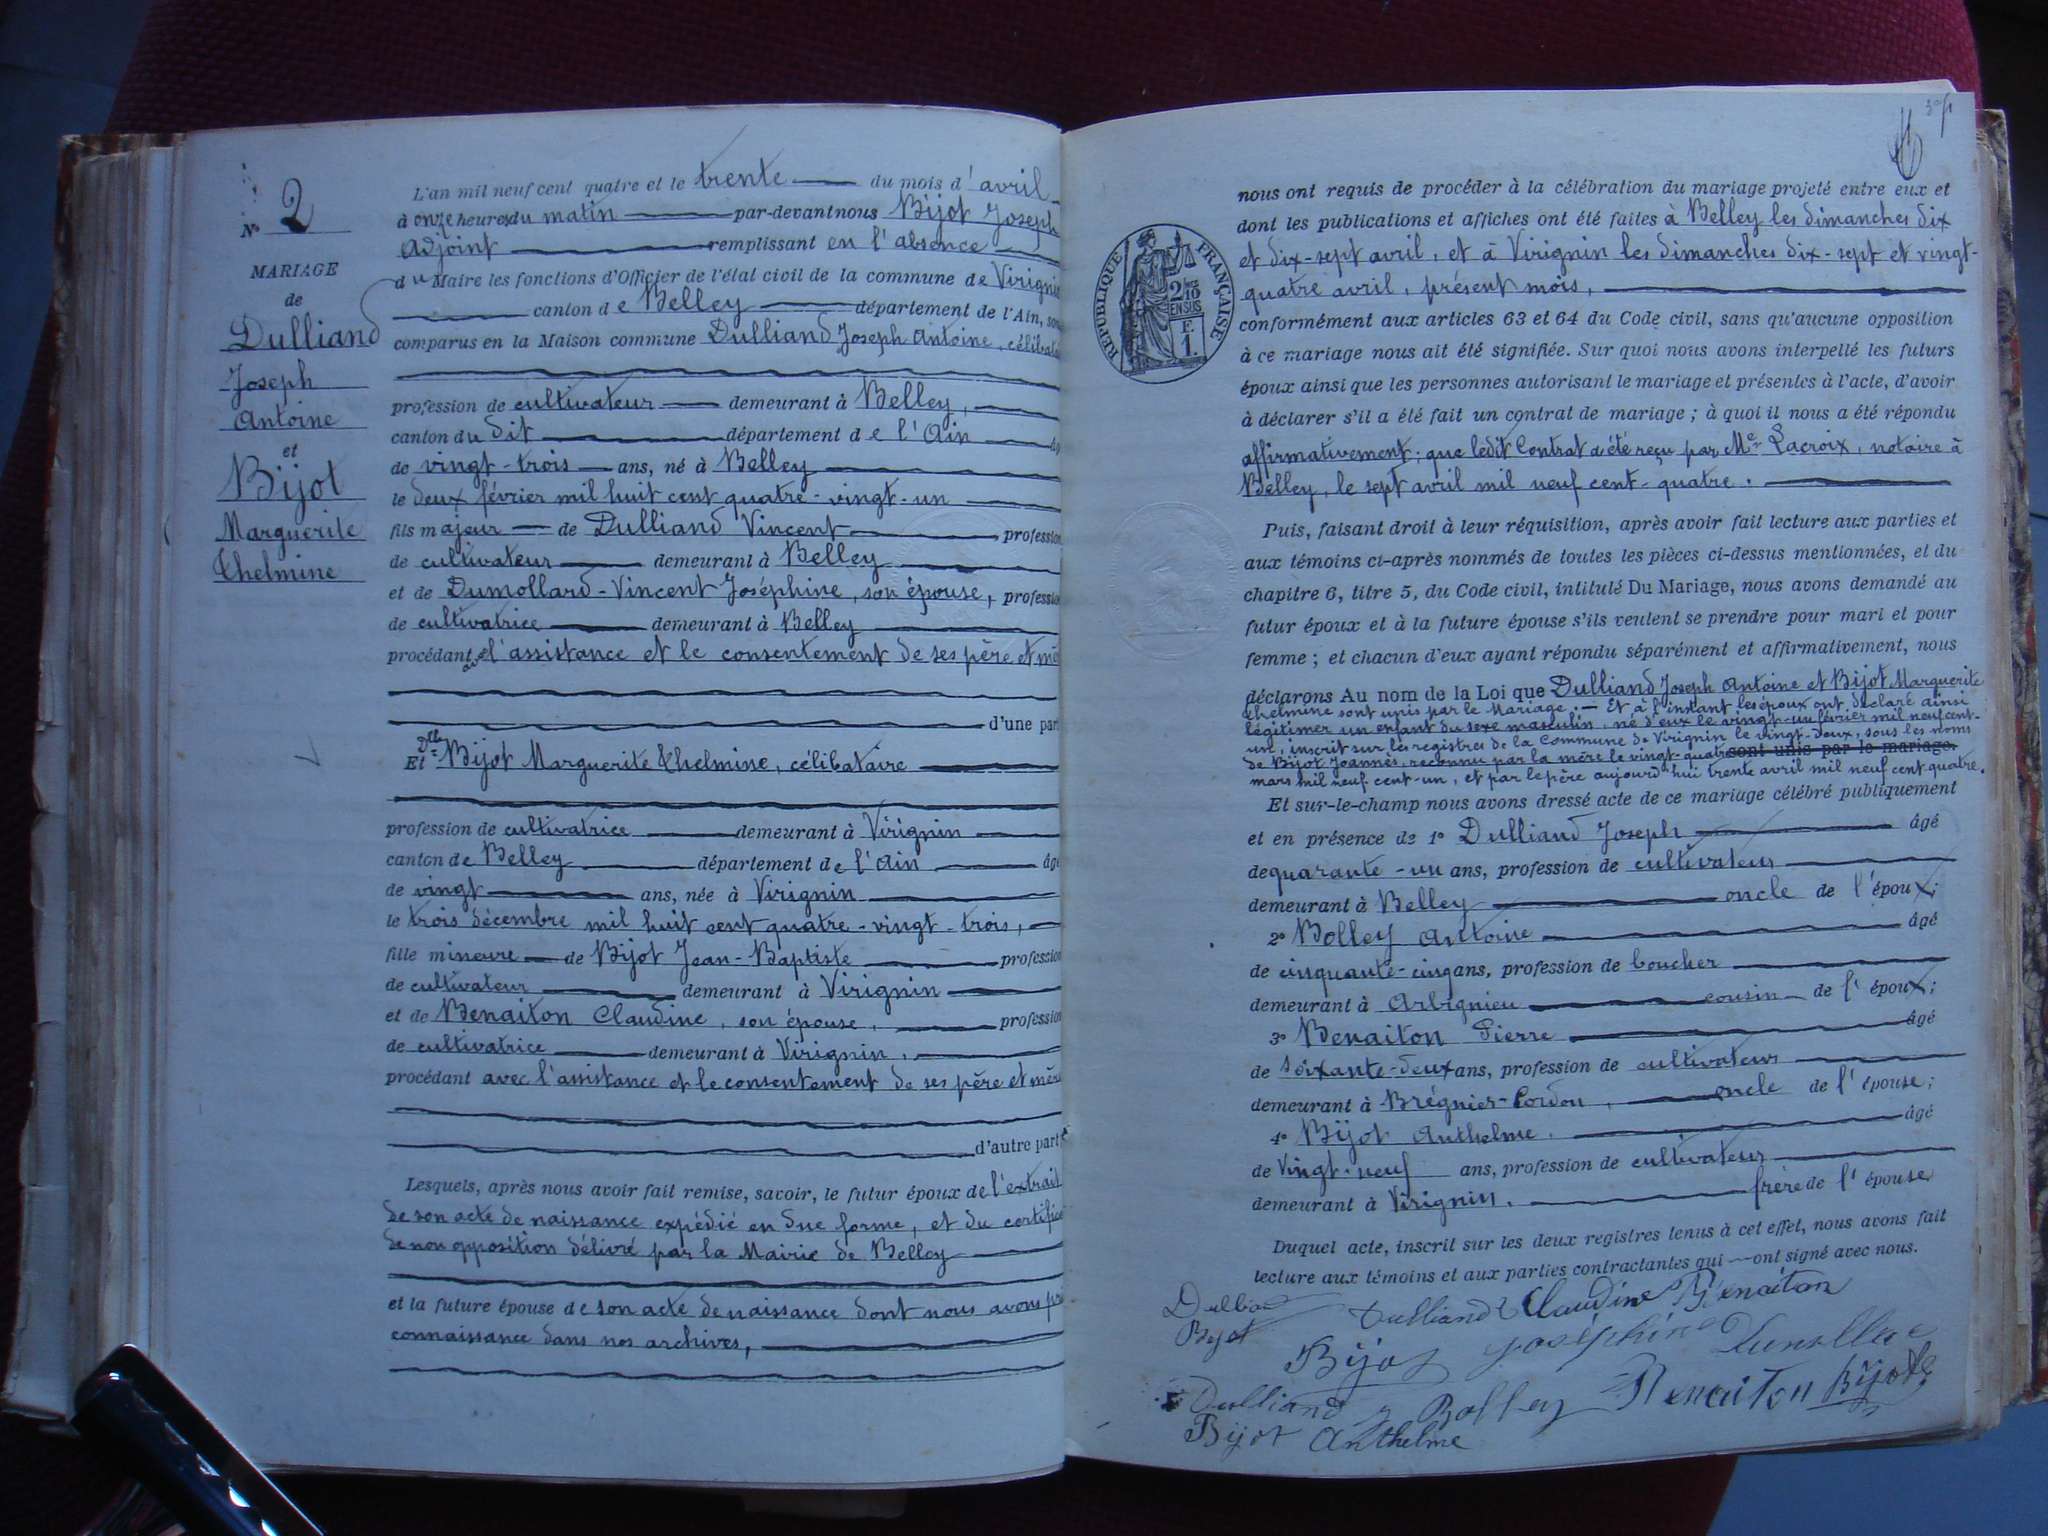 Nº 2
MARIAGE
de
Dulliand
Joseph
Antoine
et
Bijot
Marguerite
Thelmine
L'an mil neuf cent quatre et le trente du mois d'avril
à onze heures du matin par-devant nous Bijot Joseph
Adjoint remplissant en l'absence
du Maire les fonctions d'Officier de l'état civil de la commune de Virignin
canton de Belley département de l'Ain, sont
comparus en la Maison commune Dulliand Joseph Antoine, céliba
profession de cultivateur demeurant à Belley,
canton du dit département de l'Ain
de vingt-trois ans, né à Belley
le deux février mil huit cent quatre-vingt-un
fils majeur de Dulliand Vincent profession
de cultivateur demeurant à Belley
et de Dumollard-Vincent Joséphine, son épouse, profession
de cultivatrice demeurant à Belley
procédant avec l'assistance et le consentement de ses père et mè
d'une part
Et Dlle Bijot Marguerite Thelmine, célibataire
profession de cultivatrice demeurant à Virignin
canton de Belley département de l'Ain âgé
de vingt ans, née à Virignin
le trois décembre mil huit cent quatre-vingt-trois,
fille mineure de Bijot Jean-Baptiste profession
de cultivateur demeurant à Virignin
et de Benaiton Claudine, son épouse, profession
de cultivatrice demeurant à Virignin,
procédant avec l'assistance et le consentement de ses père et mère
d'autre part
Lesquels, après nous avoir fait remise, savoir, le futur époux de l'extrait
de son acte de naissance expédié en due forme, et du certific
de non opposition délivré par la Mairie de Belley
et la future épouse de son acte de naissance dont nous avons pr
connaissance dans nos archives,
nous ont requis de procéder à la célébration du mariage projeté entre eux et
dont les publications et affiches ont été faites à Belley les dimanches dix
et dix-sept avril, et à Virignin les dimanches dix-sept et vingt-
quatre avril, présent mois,
RÉPUBLIQUE FRANÇAISE
2/10
EN SUS
F.
1.
conformément aux articles 63 et 64 du Code civil, sans qu'aucune opposition
à ce mariage nous ait été signifiée. Sur quoi nous avons interpellé les futurs
époux ainsi que les personnes autorisant le mariage et présentes à l'acte, d'avoir
à déclarer s'il a été fait un contrat de mariage ; à quoi il nous a été répondu
affirmativement; que ledit Contrat a été reçu par Me Lacroix, notaire à
Belley, le sept avril mil neuf cent-quatre.
Puis, faisant droit à leur réquisition, après avoir fait lecture aux parties et
aux témoins ci-après nommés de toutes les pièces ci-dessus mentionnées, et du
chapitre 6, titre 5, du Code civil, intitulé Du Mariage, nous avons demandé au
futur époux et à la future épouse s'ils veulent se prendre pour mari et pour
femme ; et chacun d'eux ayant répondu séparément et affirmativement, nous
déclarons Au nom de la Loi que Dulliand Joseph Antoine et Bijot Marguerite
Thelmine sont unis par le Mariage. — Et à l'instant les époux ont déclaré ainsi
légitimer un enfant du sexe masculin, né d'eux le vingt-un février mil neuf cent-
un, inscrit sur les registres de la Commune de Virignin le vingt-deux, sous les noms
de Bijot Joannès, reconnu par la mère le vingt-quatre sont unis par le mariage.
mars mil neuf cent-un, et par le père aujourd'hui trente avril mil neuf cent quatre.
Et sur-le-champ nous avons dressé acte de ce mariage célébré publiquement
et en présence de 1º Dulliand Joseph âgé
de quarante-un ans, profession de cultivateur
demeurant à Belley oncle de l'époux;
2º Bolley Antoine âgé
de cinquante-cinq ans, profession de boucher
demeurant à Arbignieu cousin de l'époux;
3º Benaiton Pierre âgé
de soixante-deux ans, profession de cultivateur
demeurant à Brégnier-Cordon, oncle de l'épouse;
4º Bijot Anthelme, âgé
de vingt-neuf ans, profession de cultivateur
demeurant à Virignin, frère de l'épouse
Duquel acte, inscrit sur les deux registres tenus à cet effet, nous avons fait
lecture aux témoins et aux parties contractantes qui ont signé avec nous.
Dulliand Dulliand Claudine Benaiton
Bijot Bijot Joséphine
Dulliand Bolley Benaiton Bijot
Bijot Anthelme